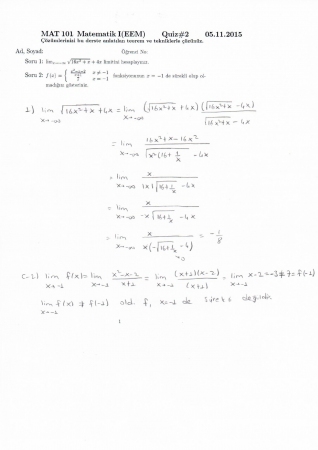 MAT 101 Matematik I(EEM) Quiz#2 05.11.2015
Çözümlerinizi bu derste anlatılan teorem ve tekniklerle çözünüz.
Ad, Soyad: Öğrenci No:
Soru 1: lim x→-∞ √(16x² + x) + 4x limitini hesaplayınız.
Soru 2: f(x) = { (x²-x-2)/(x+1) x ≠ -1
7 x = -1 fonksiyonunun x = -1 de sürekli olup olmadığını gösteriniz.
1) lim x→-∞ √(16x²+x) + 4x = lim x→-∞ (√(16x²+x) + 4x)(√(16x²+x) - 4x) / √(16x²+x) - 4x
= lim x→-∞ 16x²+x-16x² / √(x²(16+1/x)) - 4x
= lim x→-∞ x / |x|√(16+1/x) - 4x
= lim x→-∞ x / -x√(16+1/x) - 4x
= lim x→-∞ x / x(-√(16+1/x) - 4) = -1/8
→0
C-2) lim x→-1 f(x) = lim x→-1 x²-x-2 / x+1 = lim x→-1 (x+1)(x-2) / (x+1) = lim x→-1 x-2 = -3 ≠ 7 = f(-1)
lim x→-1 f(x) ≠ f(-1) old f, x=-1 de sürekli değildir
1